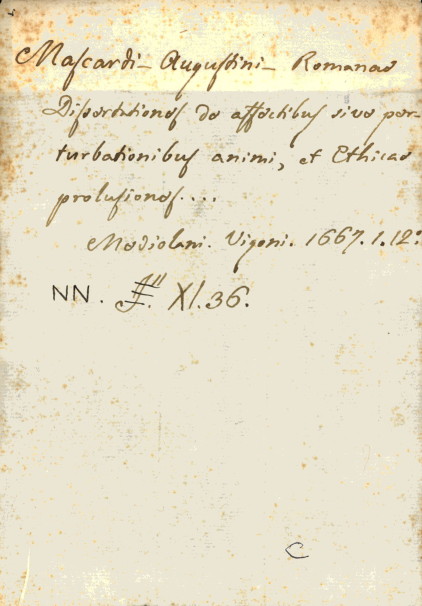 Mascardi - Augustini - Romanae
Dissertationes de affectibus sive per-
turbationibus animi, et Ethicae
prolusiones....
Mediolani. Vigoni. 1667. 1. 12:
NN. XI. 36.
C